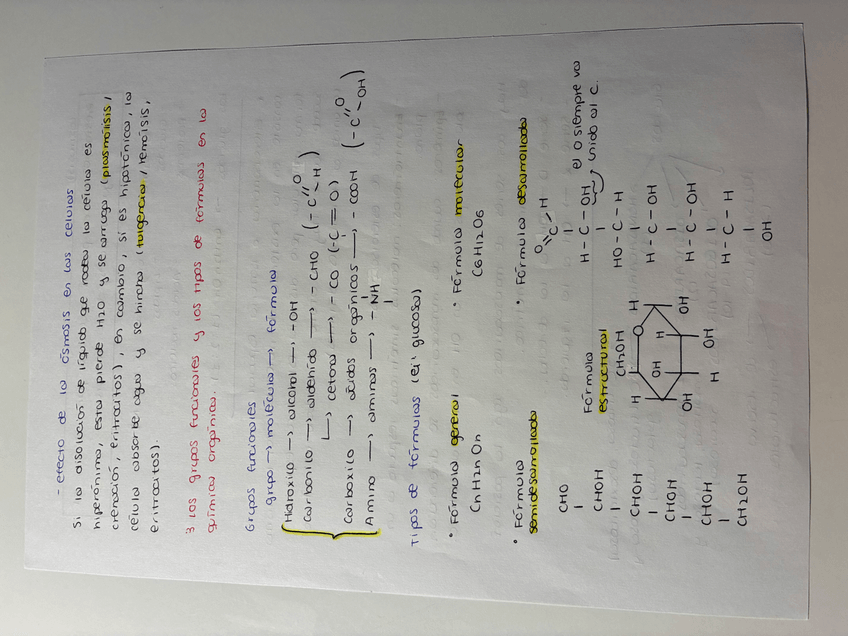 - efecto de la ósmosis en las células
Si la disolución de líquido qe rodea la célula es
hiperónima, esta pierde H2O y se arruga (plasmólisis,
crenación, eritrocitos), en cambio, si es hipotónica, la
célula absorbe agua y se hincha (turgencia, hemólisis,
eritrocitos).
3 Los grupos funcionales y los tipos de fórmulas en la
química orgánica.
Grupos funcionales
grupo → molécula → fórmula
Hidroxilo → alcohol → -OH
Carbonilo → aldehído → -CHO (-C=O-H)
↳ cetona → -CO (-C=O)
Carboxilo → ácidos orgánicos → -COOH (-C=O-OH)
Amino → aminas → -NH
Tipos de fórmulas (ej: glucosa)
• Fórmula general
CnH2nOn
• Fórmula molecular
C6H12O6
• Fórmula
semidesarrollada
CHO
CHOH
CHOH
CHOH
CHOH
CH2OH
Fórmula
estructural
CH2OH
H
O
H
H
OH
OH
OH
H
OH
• Fórmula desarrollada
O
C-H
H-C-OH
HO-C-H
H-C-OH
H-C-OH
H-C-H
OH
el O siempre va
unido al C.